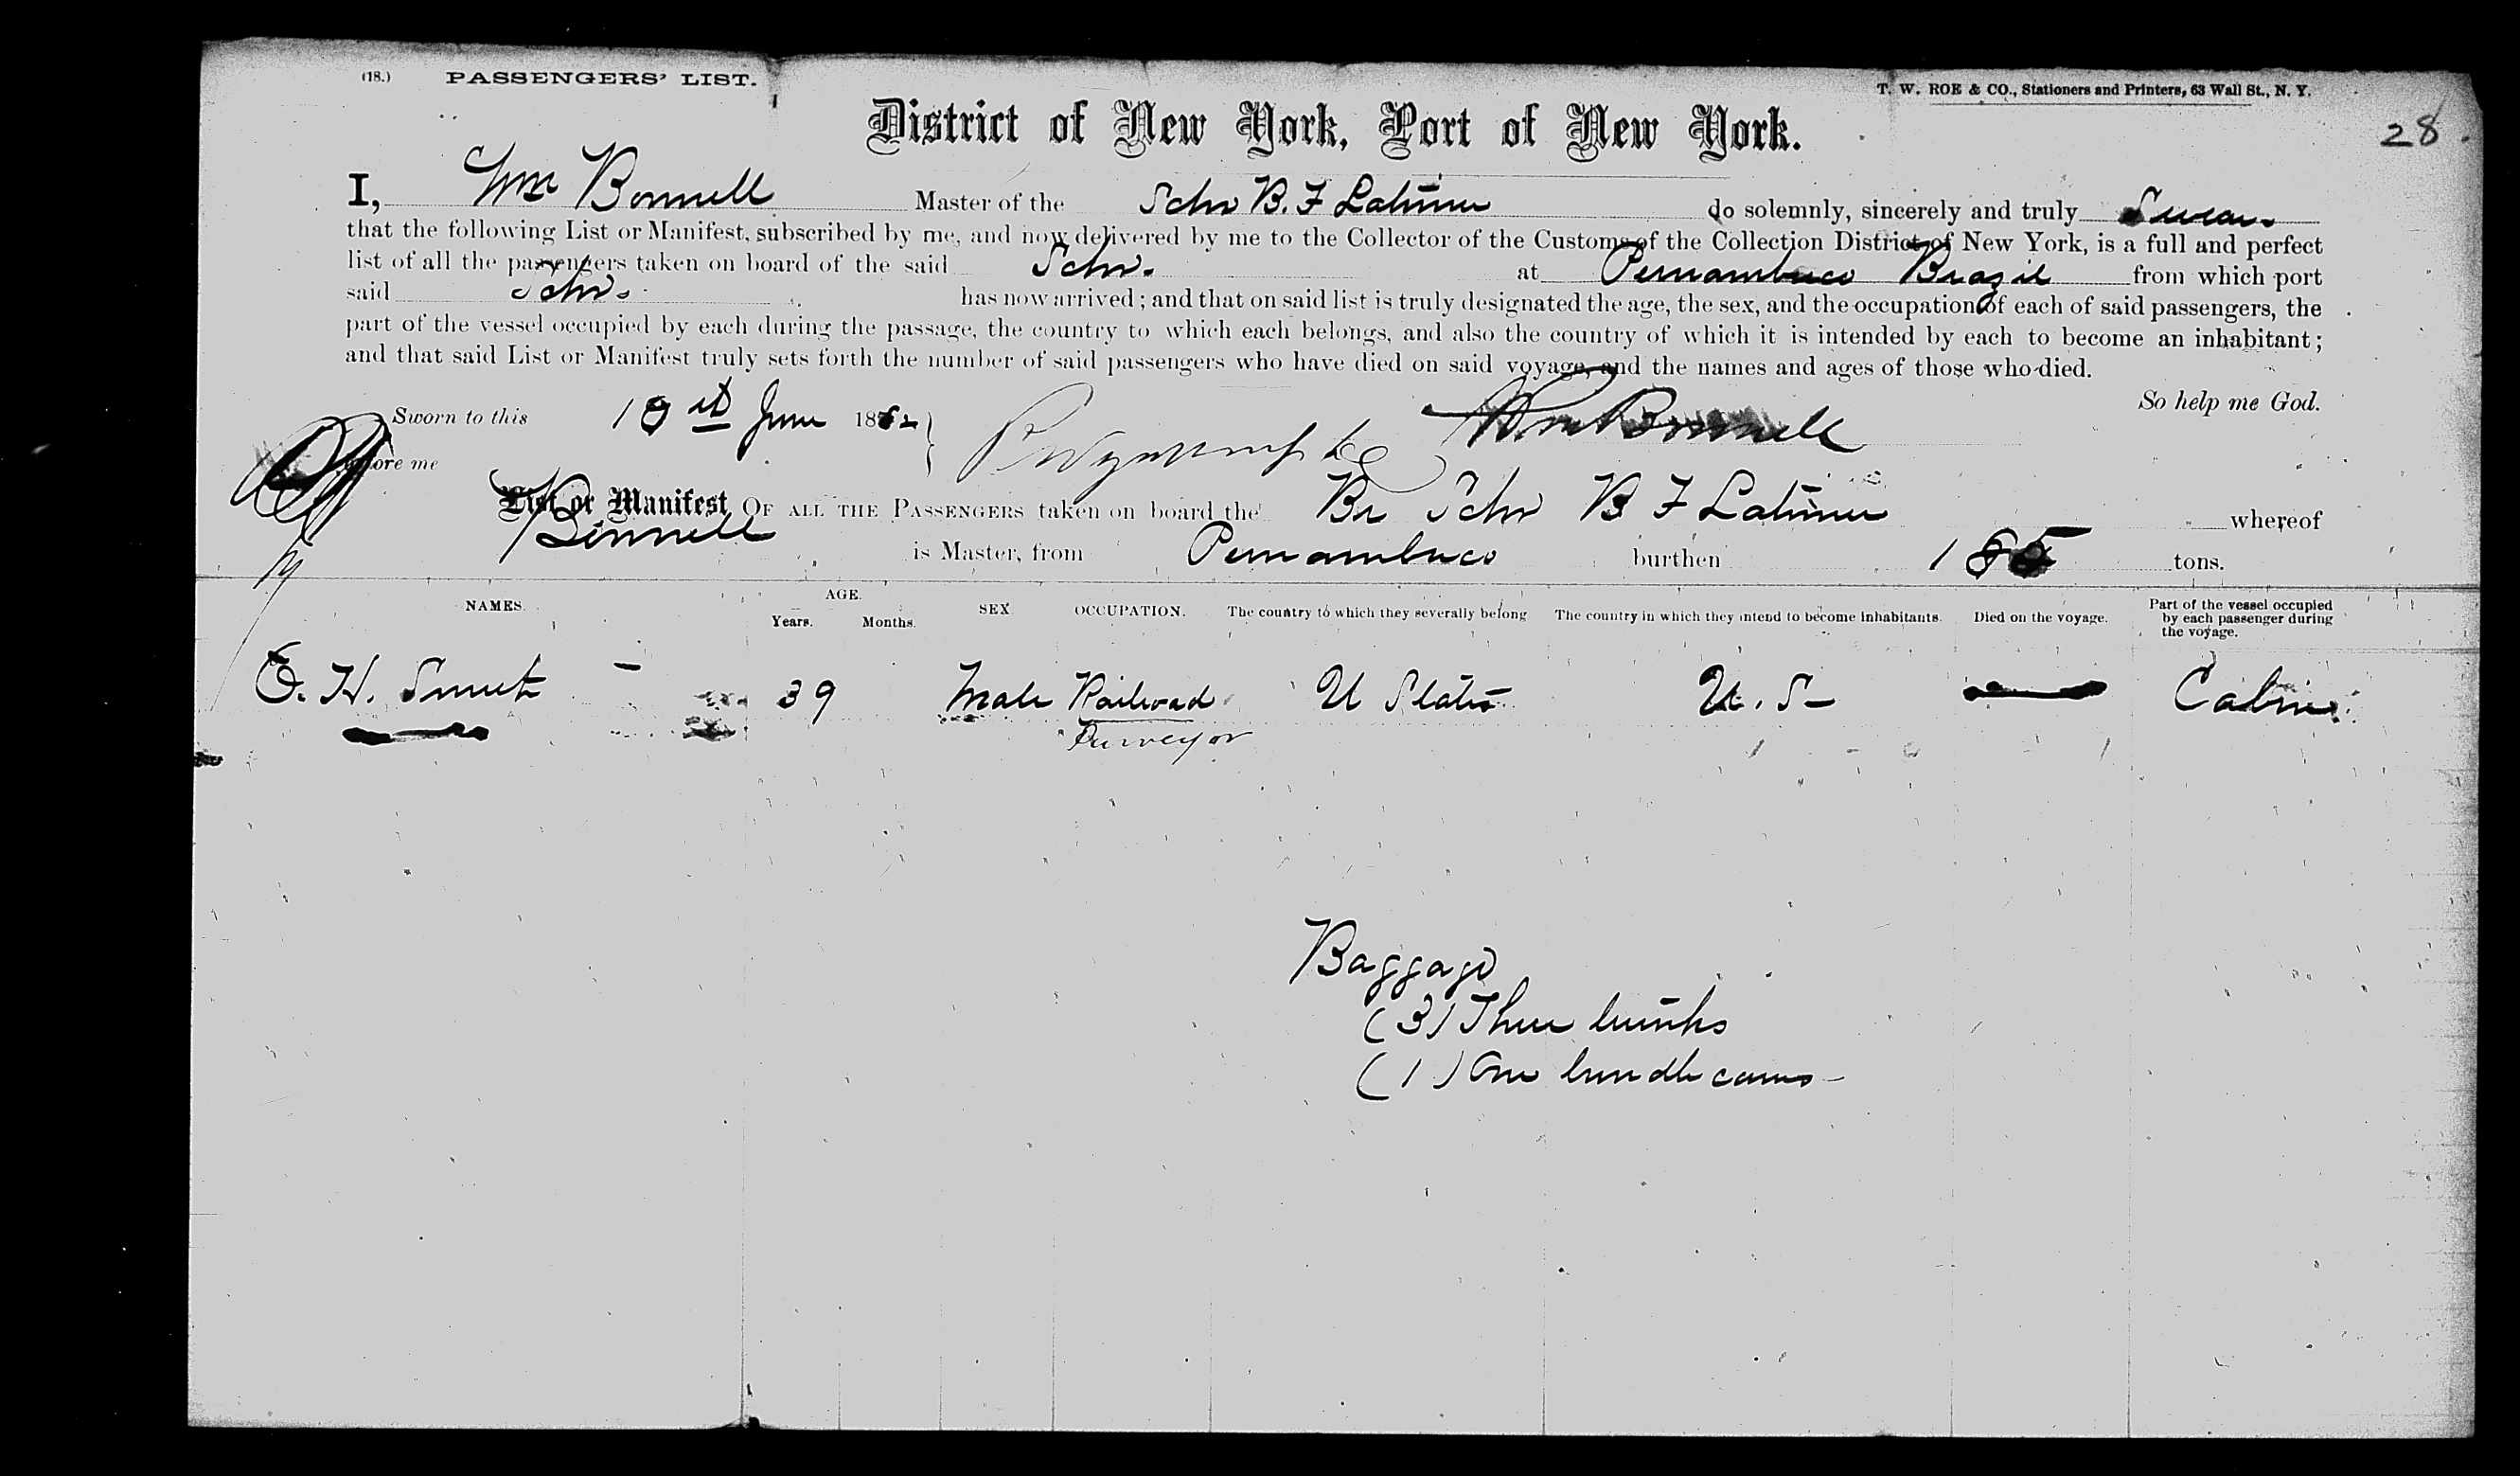 (18.) PASSENGERS' LIST.
T. W. ROE & CO., Stationers and Printers, 63 Wall St., N. Y.
28
District of New York, Port of New York.
I, Wm Bonnell Master of the Schr B. F Latimer do solemnly, sincerely and truly Swear
that the following List or Manifest, subscribed by me, and now delivered by me to the Collector of the Customs of the Collection District of New York, is a full and perfect
list of all the passengers taken on board of the said Schr. at Pernambuco Brazil from which port
said Schr. has now arrived; and that on said list is truly designated the age, the sex, and the occupation of each of said passengers, the
part of the vessel occupied by each during the passage, the country to which each belongs, and also the country of which it is intended by each to become an inhabitant;
and that said List or Manifest truly sets forth the number of said passengers who have died on said voyage, and the names and ages of those who died.
So help me God.
Sworn to this June 1882
Wm Bonnell
before me
List or Manifest OF ALL THE PASSENGERS taken on board the Br Schr B F Latimer whereof
Bonnell is Master, from Pernambuco burthen tons.
NAMES. AGE. Years. Months. SEX OCCUPATION. The country to which they severally belong The country in which they intend to become inhabitants. Died on the voyage. Part of the vessel occupied by each passenger during the voyage.
H. 39 Male Railroad U States U. S Cabin
Surveyor
Baggage
(3) Three trunks
(1) One bundle canes